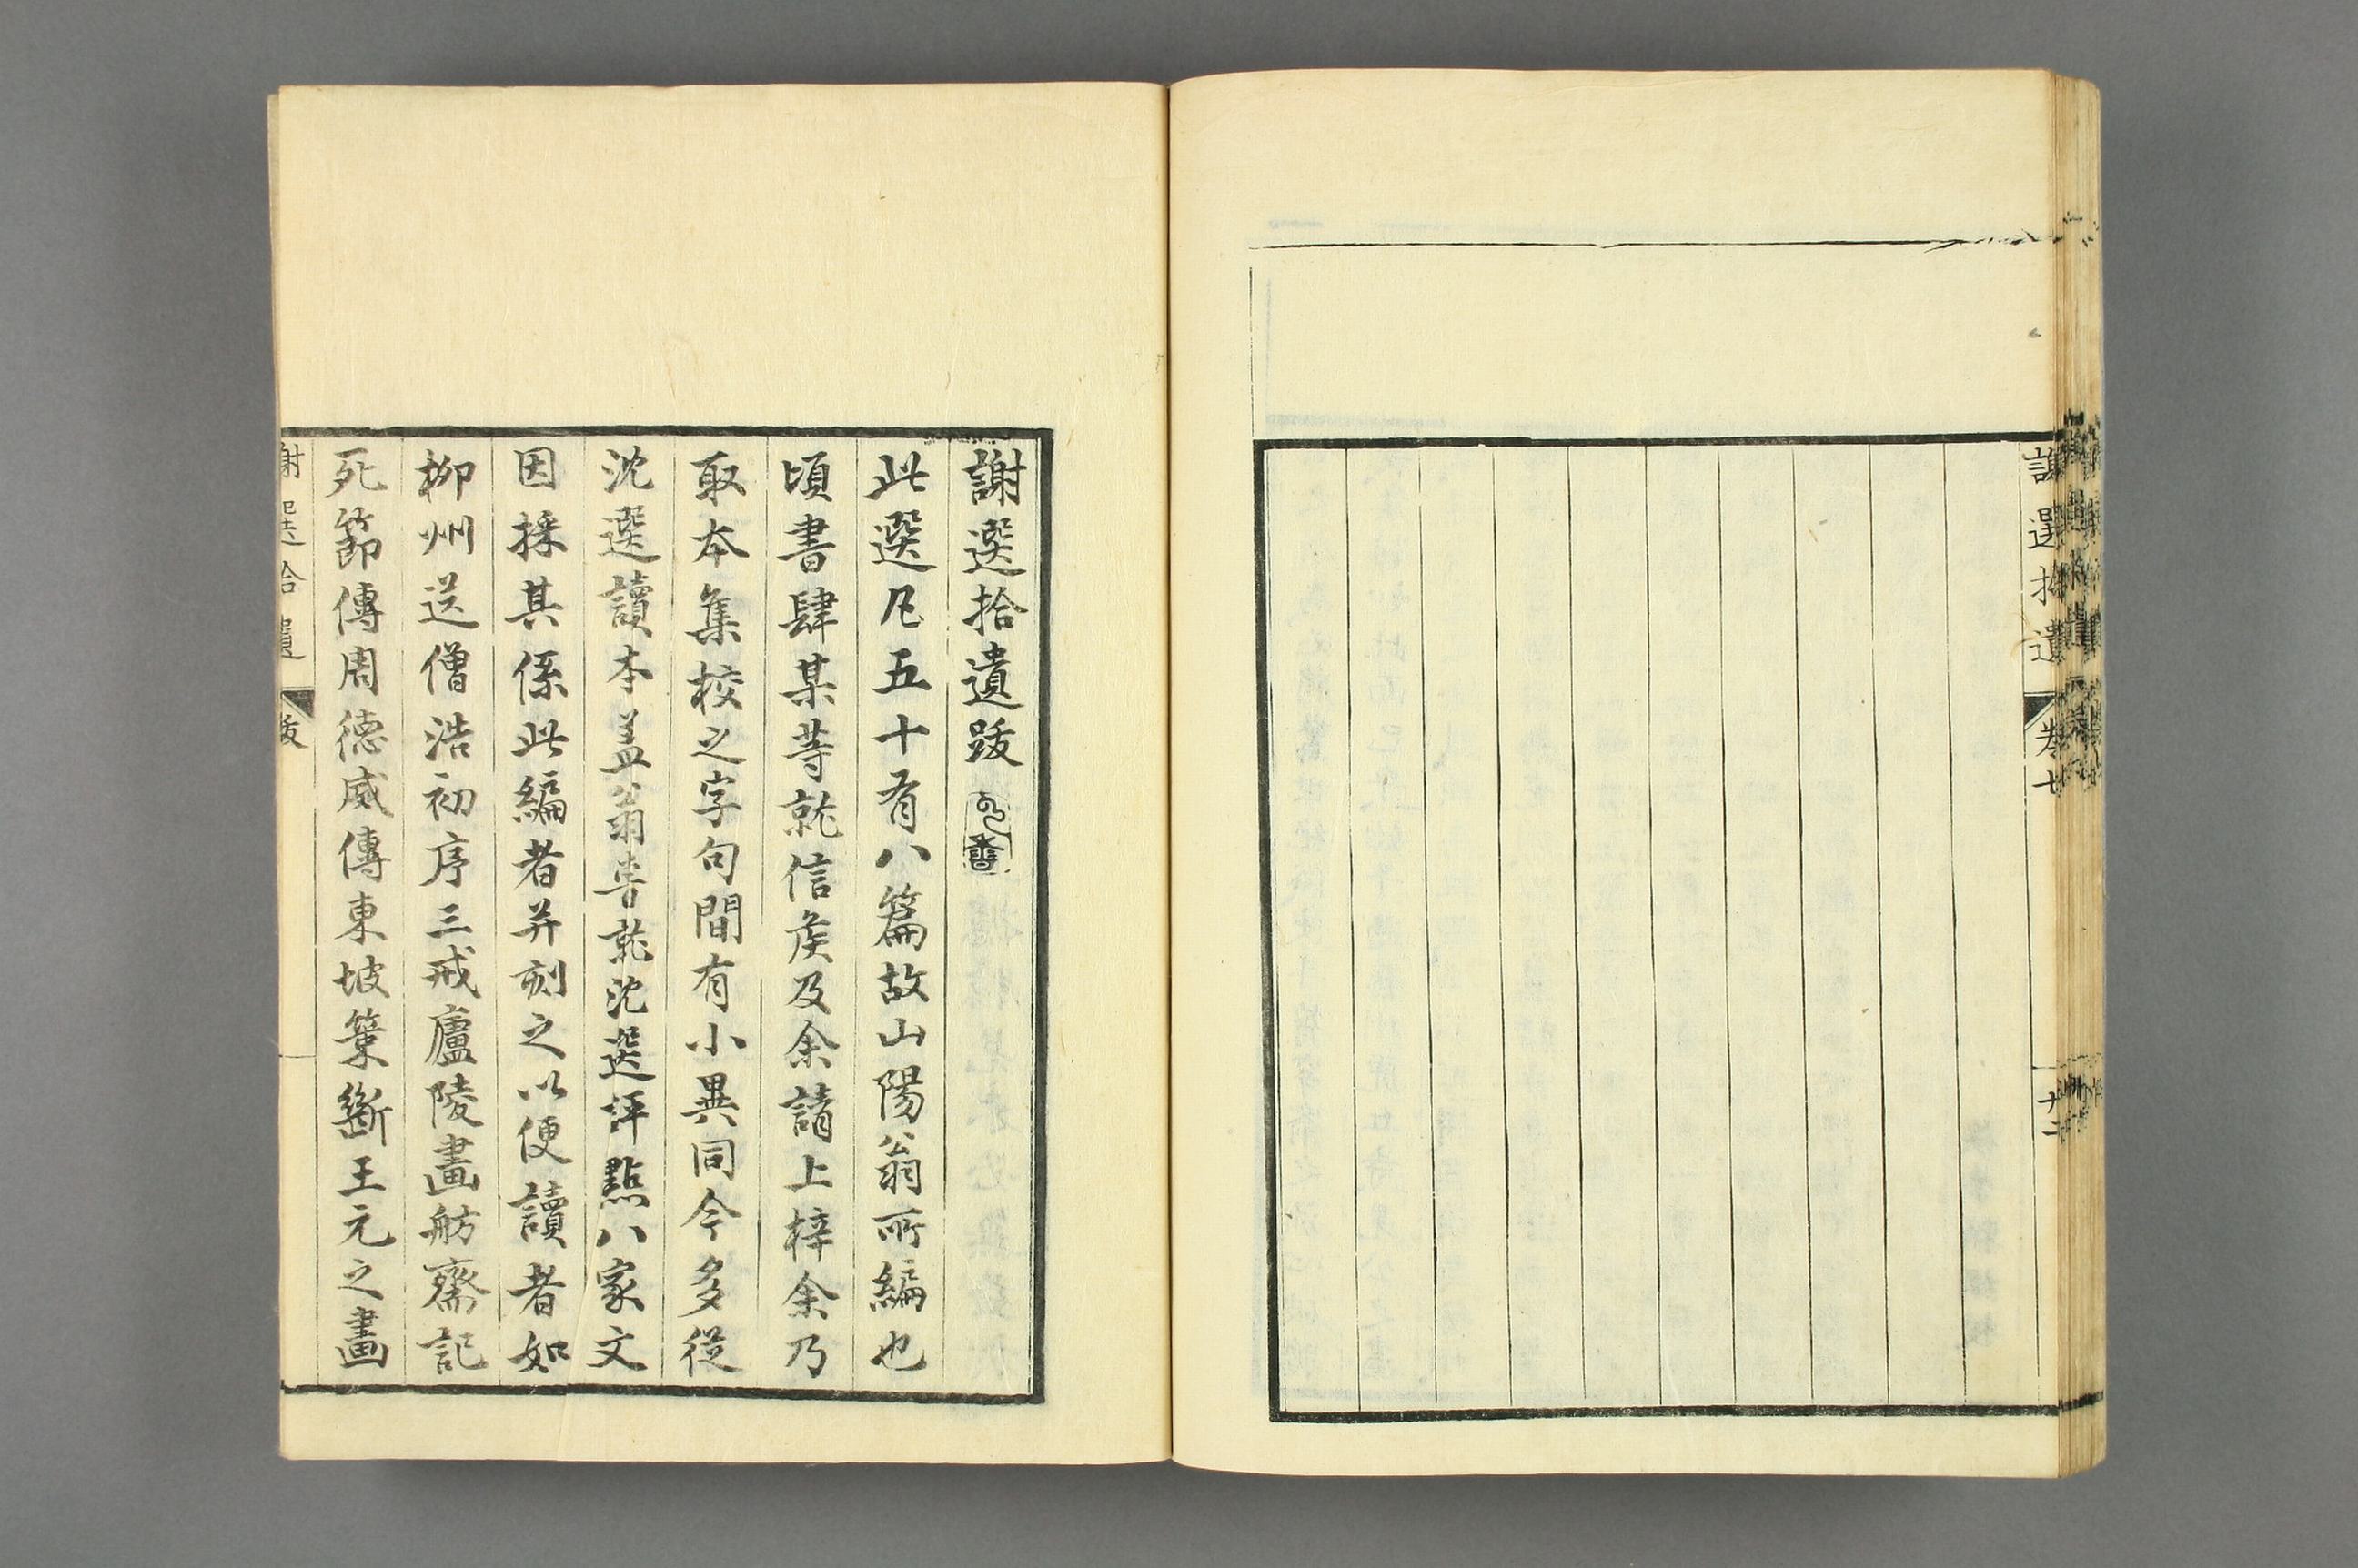 謝選拾遺
卷七
十二
謝選拾遺跋
此選凡五十有八篇故山陽翁所編也
頃書肆某等就信矦及余請上梓余乃
取本集校之字句間有小異同今多從
沈選讀本盖翁甞就沈選評點八家文
因採其係此編者并刻之以便讀者如
柳州送僧浩初序三戒廬陵畫舫齋記
死節傳周德威傳東坡篆斷王元之畫
謝選拾遺
跋